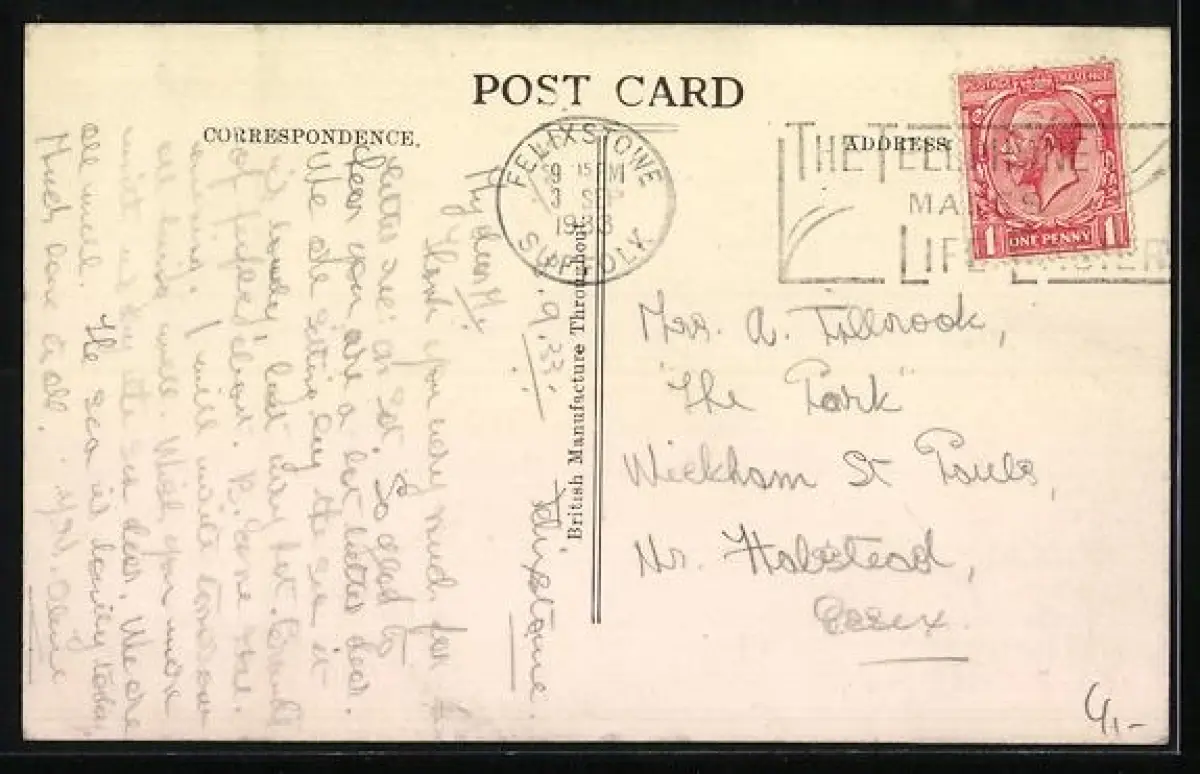 POST CARD
CORRESPONDENCE.
ADDRESS
FELIXSTOWE
9 15 PM
3 SEP
1933
SUFFOLK
THE TELEPHONE
MAKES
LIFE EASIER
POSTAGE REVENUE
1 ONE PENNY 1
British Manufacture Throughout
Felixstowe.
3.9.33.
My dear M:
Thank you very much for
letter rec: as Sat. So glad to
hear you are a bit better dear.
We are sitting by the sea it
is lovely, last day but
of
I will write tomorrow
all being well. Wish you were
by the sea dear. We are
all well. The sea is lovely today.
Much love to all.
Mrs. A. Tillbrook,
"The Park"
Wickham St Pauls,
Nr. Halstead,
Essex.
4,-